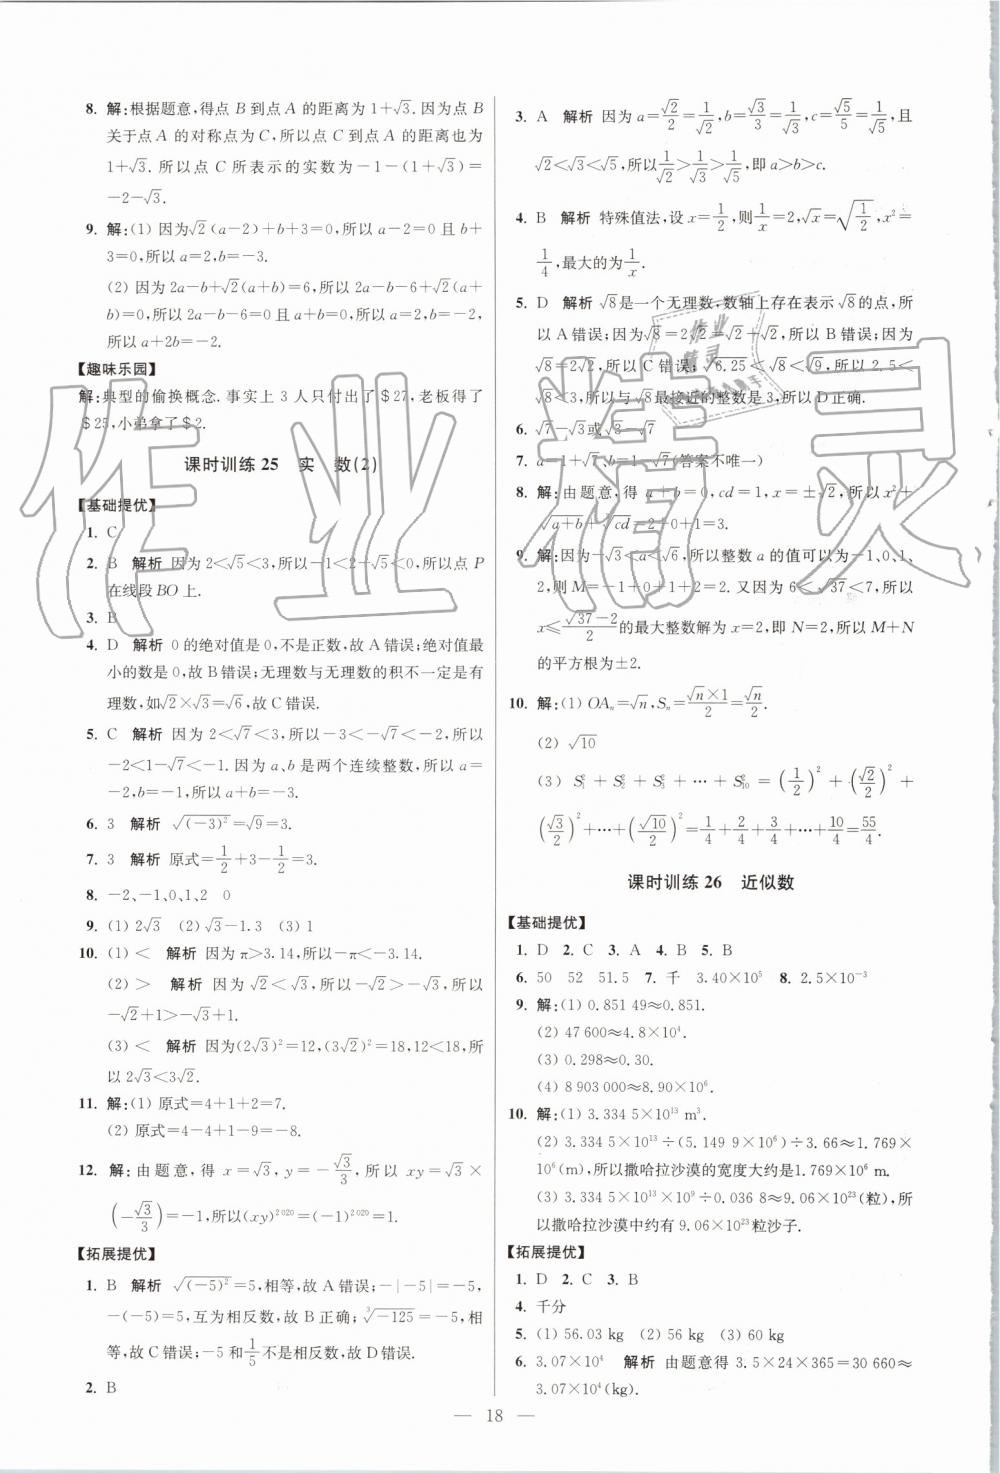 8. 解:根据题意,得点 B 到点 A 的距离为 1+√3. 因为点 B
关于点 A 的对称点为 C,所以点 C 到点 A 的距离也为
1+√3. 所以点 C 所表示的实数为 -1-(1+√3)=
-2-√3.
9. 解:(1) 因为√2(a-2)+b+3=0,所以 a-2=0 且 b+
3=0,所以 a=2,b=-3.
(2) 因为 2a-b+√2(a+b)=6,所以 2a-b-6+√2(a+
b)=0,所以 2a-b-6=0 且 a+b=0,所以 a=2,b=-2,所以
a+2b=-2.
【趣味乐园】
解:典型的偷换概念. 事实上 3 人只付出了 $ 27,老板得了
$ 25,小弟拿了 $ 2.
课时训练 25 实 数(2)
【基础提优】
1. C
2. B 解析 因为 2<√5<3,所以-1<2-√5<0,所以点 P
在线段 BO 上.
3. B
4. D 解析 0 的绝对值是 0,不是正数,故 A 错误;绝对值最
小的数是 0,故 B 错误;无理数与无理数的积不一定是有
理数,如√2×√3=√6,故 C 错误.
5. C 解析 因为 2<√7<3,所以-3<-√7<-2,所以
-2<1-√7<-1. 因为 a、b 是两个连续整数,所以 a=
-2,b=-1,所以 a+b=-3.
6. 3 解析 √(-3)²=√9=3.
7. 3 解析 原式=1/2+3-1/2=3.
8. -2、-1、0、1、2 0
9. (1) 2√3 (2) √3-1.3 (3) 1
10. (1) < 解析 因为 π>3.14,所以-π<-3.14.
(2) > 解析 因为 √2<√3,所以-√2>-√3,所以
-√2+1>-√3+1.
(3) < 解析 因为(2√3)²=12,(3√2)²=18,12<18,所
以 2√3<3√2.
11. 解:(1) 原式=4+1+2=7.
(2) 原式=4-4+1-9=-8.
12. 解:由题意,得 x=√3,y=-√3/3,所以 xy=√3×
(-√3/3)=-1,所以(xy)²⁰²⁰=(-1)²⁰²⁰=1.
【拓展提优】
1. B 解析 √(-5)²=5,相等,故 A 错误;-|-5|=-5,
-(-5)=5,互为相反数,故 B 正确;³√-125=-5,相
等,故 C 错误;-5 和1/5不是相反数,故 D 错误.
2. B
3. A 解析 因为 a=√2/2=1/√2,b=√3/3=1/√3,c=√5/5=1/√5,且
√2<√3<√5,所以1/√2>1/√3>1/√5,即 a>b>c.
4. B 解析 特殊值法,设 x=1/2,则1/x=2,√x=√(1/2),x²=
1/4,最大的为1/x.
5. D 解析 √8是一个无理数,数轴上存在表示√8的点,所
以 A 错误;因为√8=2√2=√2+√2,所以 B 错误;因为
√8=2√2,所以 C 错误;√6.25<√8<√9,所以 2.5<
√8<3,所以与√8最接近的整数是 3,所以 D 正确.
6. √7-√3或√3-√7
7. a-1+√7、b-1-√7(答案不唯一)
8. 解:由题意,得 a+b=0,cd=1,x=±√2,所以 x²+
√a+b+³√cd=2+0+1=3.
9. 解:因为-√3<a<√6,所以整数 a 的值可以为-1、0、1、
2,则 M=-1+0+1+2=2. 又因为 6<√37<7,所以
x≤(√37-2)/2的最大整数解为 x=2,即 N=2,所以 M+N
的平方根为±2.
10. 解:(1) OAₙ=√n,Sₙ=(√n×1)/2=√n/2.
(2) √10
(3) S₁²+S₂²+S₃²+⋯+S₁₀²=(1/2)²+(√2/2)²+
(√3/2)²+⋯+(√10/2)²=1/4+2/4+3/4+⋯+10/4=55/4.
课时训练 26 近似数
【基础提优】
1. D 2. C 3. A 4. B 5. B
6. 50 52 51.5 7. 千 3.40×10⁵ 8. 2.5×10⁻³
9. 解:(1) 0.851 49≈0.851.
(2) 47 600≈4.8×10⁴.
(3) 0.298≈0.30.
(4) 8 903 000≈8.90×10⁶.
10. 解:(1) 3.334 5×10¹³ m³.
(2) 3.334 5×10¹³÷(5.149 9×10⁶)÷3.66≈1.769×
10⁶(m),所以撒哈拉沙漠的宽度大约是1.769×10⁶ m.
(3) 3.334 5×10¹³×10⁹÷0.036 8≈9.06×10²³(粒),所
以撒哈拉沙漠中约有 9.06×10²³粒沙子.
【拓展提优】
1. D 2. C 3. B
4. 千分
5. (1) 56.03 kg (2) 56 kg (3) 60 kg
6. 3.07×10⁴ 解析 由题意得 3.5×24×365=30 660≈
3.07×10⁴(kg).
— 18 —
作业精灵